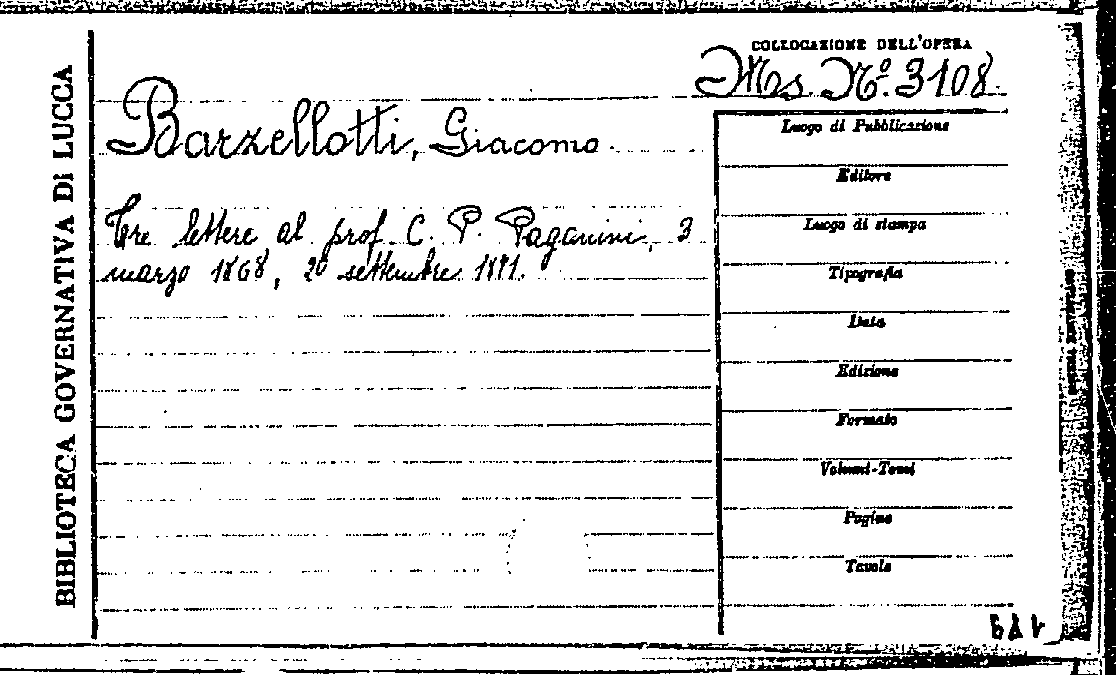 BIBLIOTECA GOVERNATIVA DI LUCCA
COLLOCAZIONE DELL'OPERA
Ms. No. 3108
Barzellotti, Giacomo
Tre lettere al prof. C. P. Paganini, 3
marzo 1868, 20 settembre 1891.
Luogo di Pubblicazione
Editore
Luogo di stampa
Tipografia
Data
Edizione
Formato
Volumi-Tomi
Pagine
Tavole